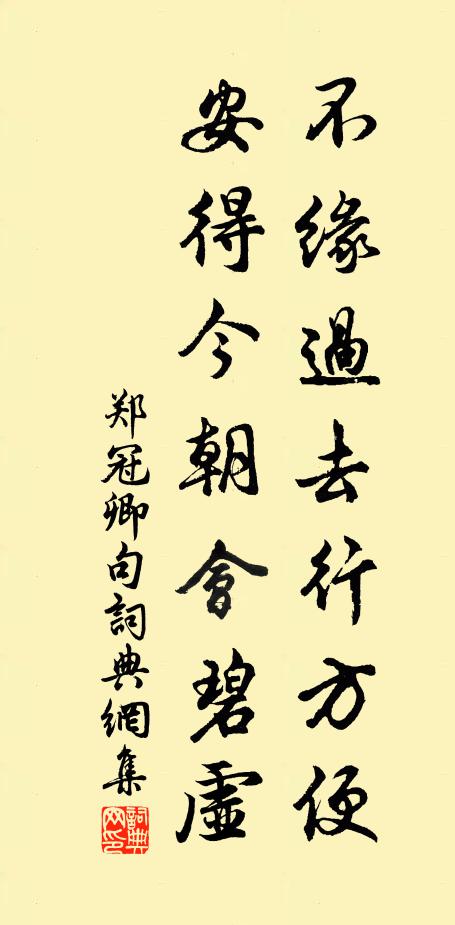 不緣過去行方便
安得今朝會碧虛
郑冠卿句詞典網集
詞典網印